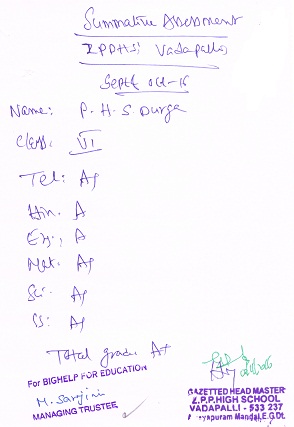 Summative Assessment
ZPPHS Vadapalli
Sept & Oct-16
Name: P. H. S. Durga
Class: VI
Tel: A+
Hin. A
Eng. A
Mat. A+
Sci. A+
SS: A+
Total grade A+
For BIGHELP FOR EDUCATION
M. Sarjini
MANAGING TRUSTEE
GAZETTED HEAD MASTER
Z.P.P.HIGH SCHOOL
VADAPALLI - 533 237
Mandal, E.G.Dt.